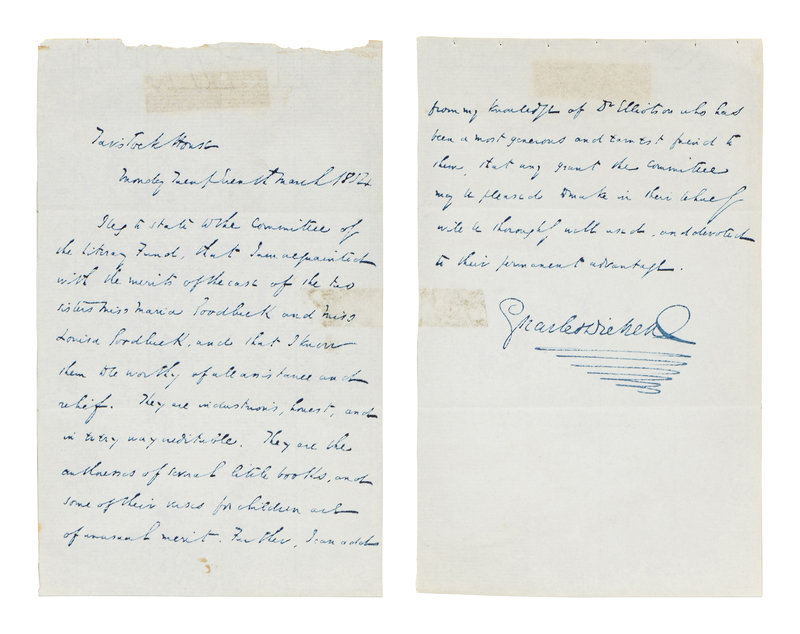 Tavistock House
Monday March 1854
I beg to state to the Committee of
the Literary Fund, that I am acquainted
with the merits of the case of the two
sisters Miss Maria Goodluck and Miss
Louisa Goodluck, and that I know
them to be worthy of all assistance and
relief. They are industrious, honest, and
in every way creditable. They are the
authoresses of several little books, and
some of their verses for children are
of unusual merit. Further, I can add
from my knowledge of Dr Elliotson who has
been a most generous and earnest friend to
them, that any grant the Committee
may be pleased to make in their behalf
will be thoroughly well used, and devoted
to their permanent advantage.
Charles Dickens